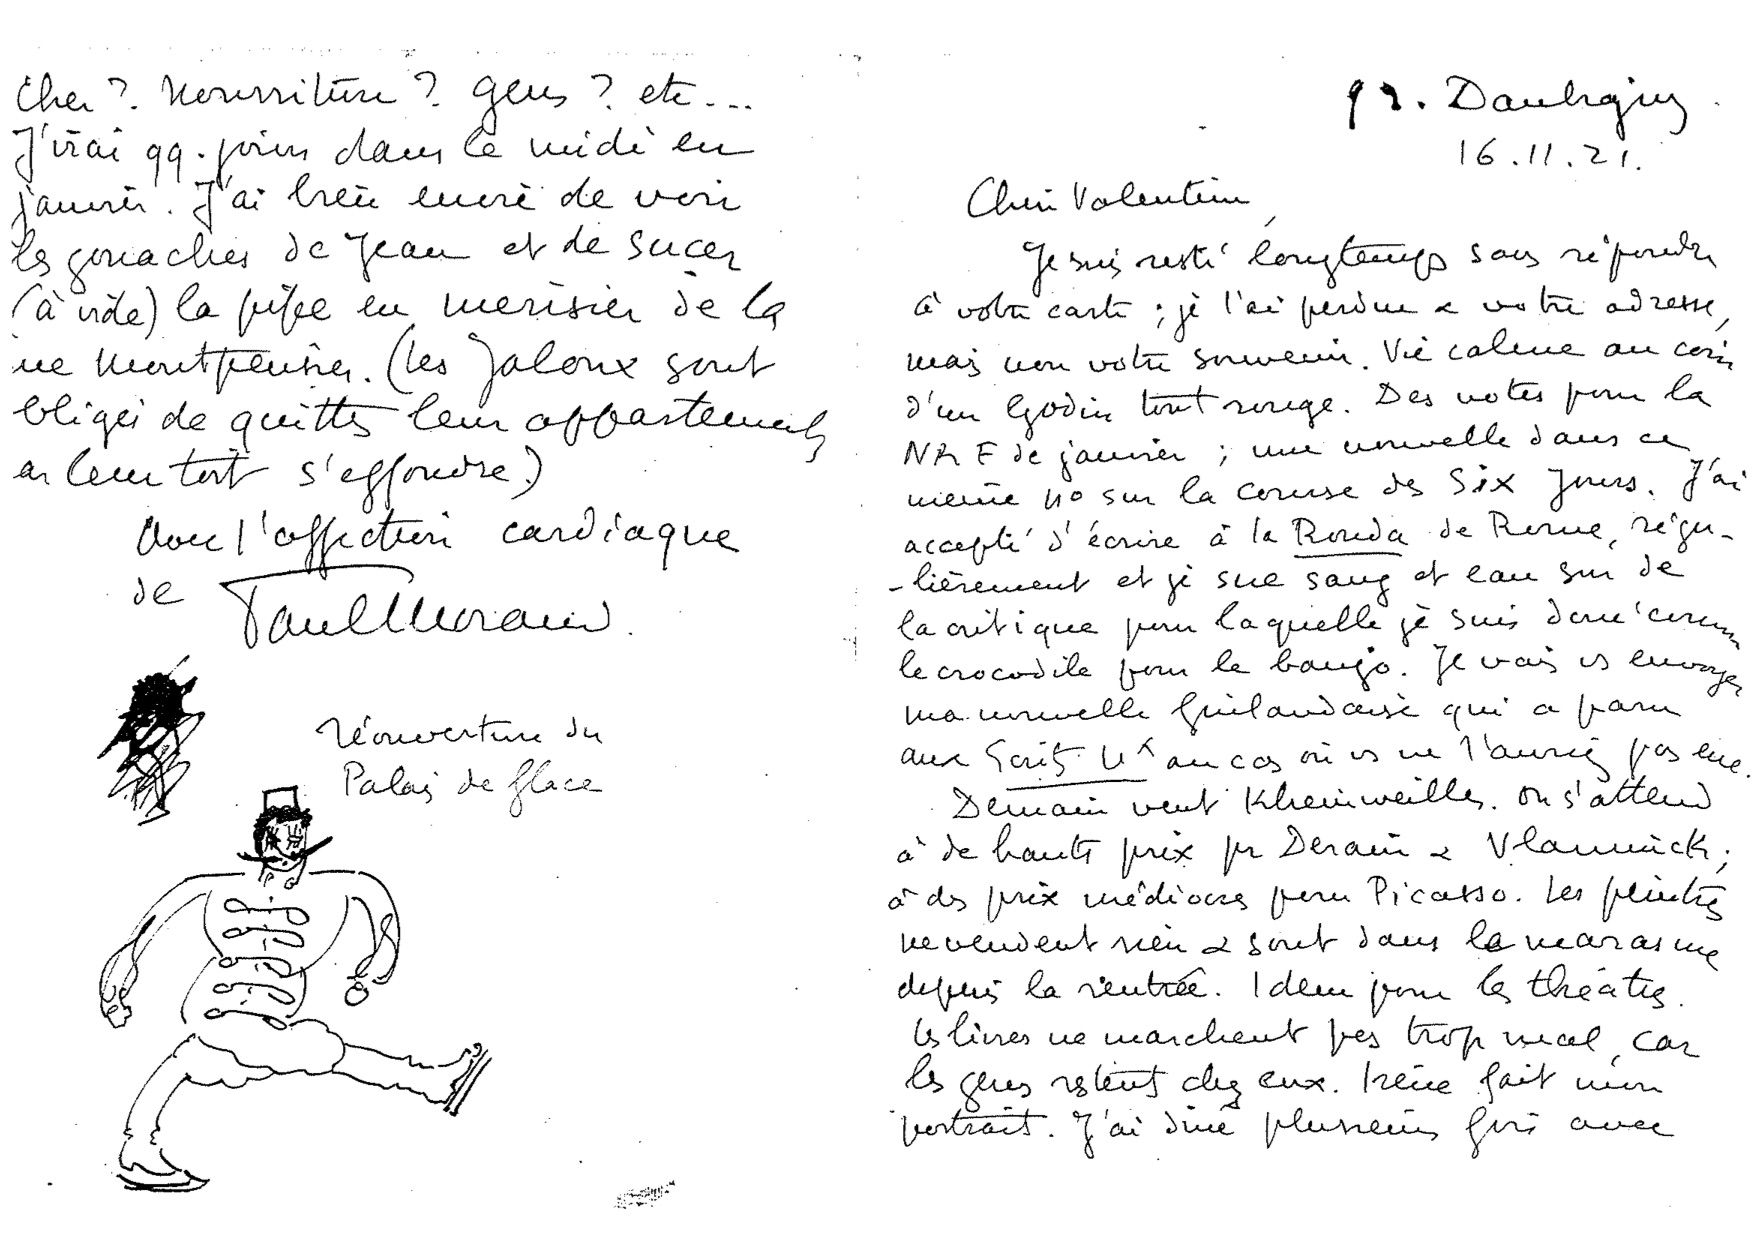 9 r. Daubigny
16.11.21.
Chère Valentine,
Je suis resté longtemps sans répondre
à votre carte ; je l'ai perdue & votre adresse,
mais non votre souvenir. Vie calme au coin
d'un Godin tout rouge. Des notes pour la
NRF de janvier ; une nouvelle dans ce
même no sur la course des Six Jours. J'ai
accepté d'écrire à la Ronda de Rome, régu-
-lièrement et je sue sang et eau sur de
la critique pour laquelle je suis doué comme
le crocodile pour le banjo. Je vais vs envoyer
ma nouvelle finlandaise qui a paru
aux Ecrits Nx au cas où vs ne l'auriez pas eue.
Demain vent Khenweiller. On s'attend
à de hauts prix pr Derain & Vlaminck ;
à des prix médiocres pour Picasso. Les peintres
ne vendent rien & sont dans le marasme
depuis la rentrée. Idem pour les théâtres.
Les livres ne marchent pas trop mal, car
les gens restent chez eux. Irène fait mon
portrait. J'ai diné plusieurs fois avec
Cher ? Nourriture ? Gens ? etc...
J'irai qq. jours dans le midi en
janvier. J'ai bien envie de voir
les gouaches de Jean et de sucer
(à vide) la pipe en merisier de la
rue Montpensier. (Les Jaloux sont
obligés de quitter leur appartement
car leur toit s'effondre.)
Avec l'affection cardiaque
de Paul Morand.
réouverture du
Palais de Glace